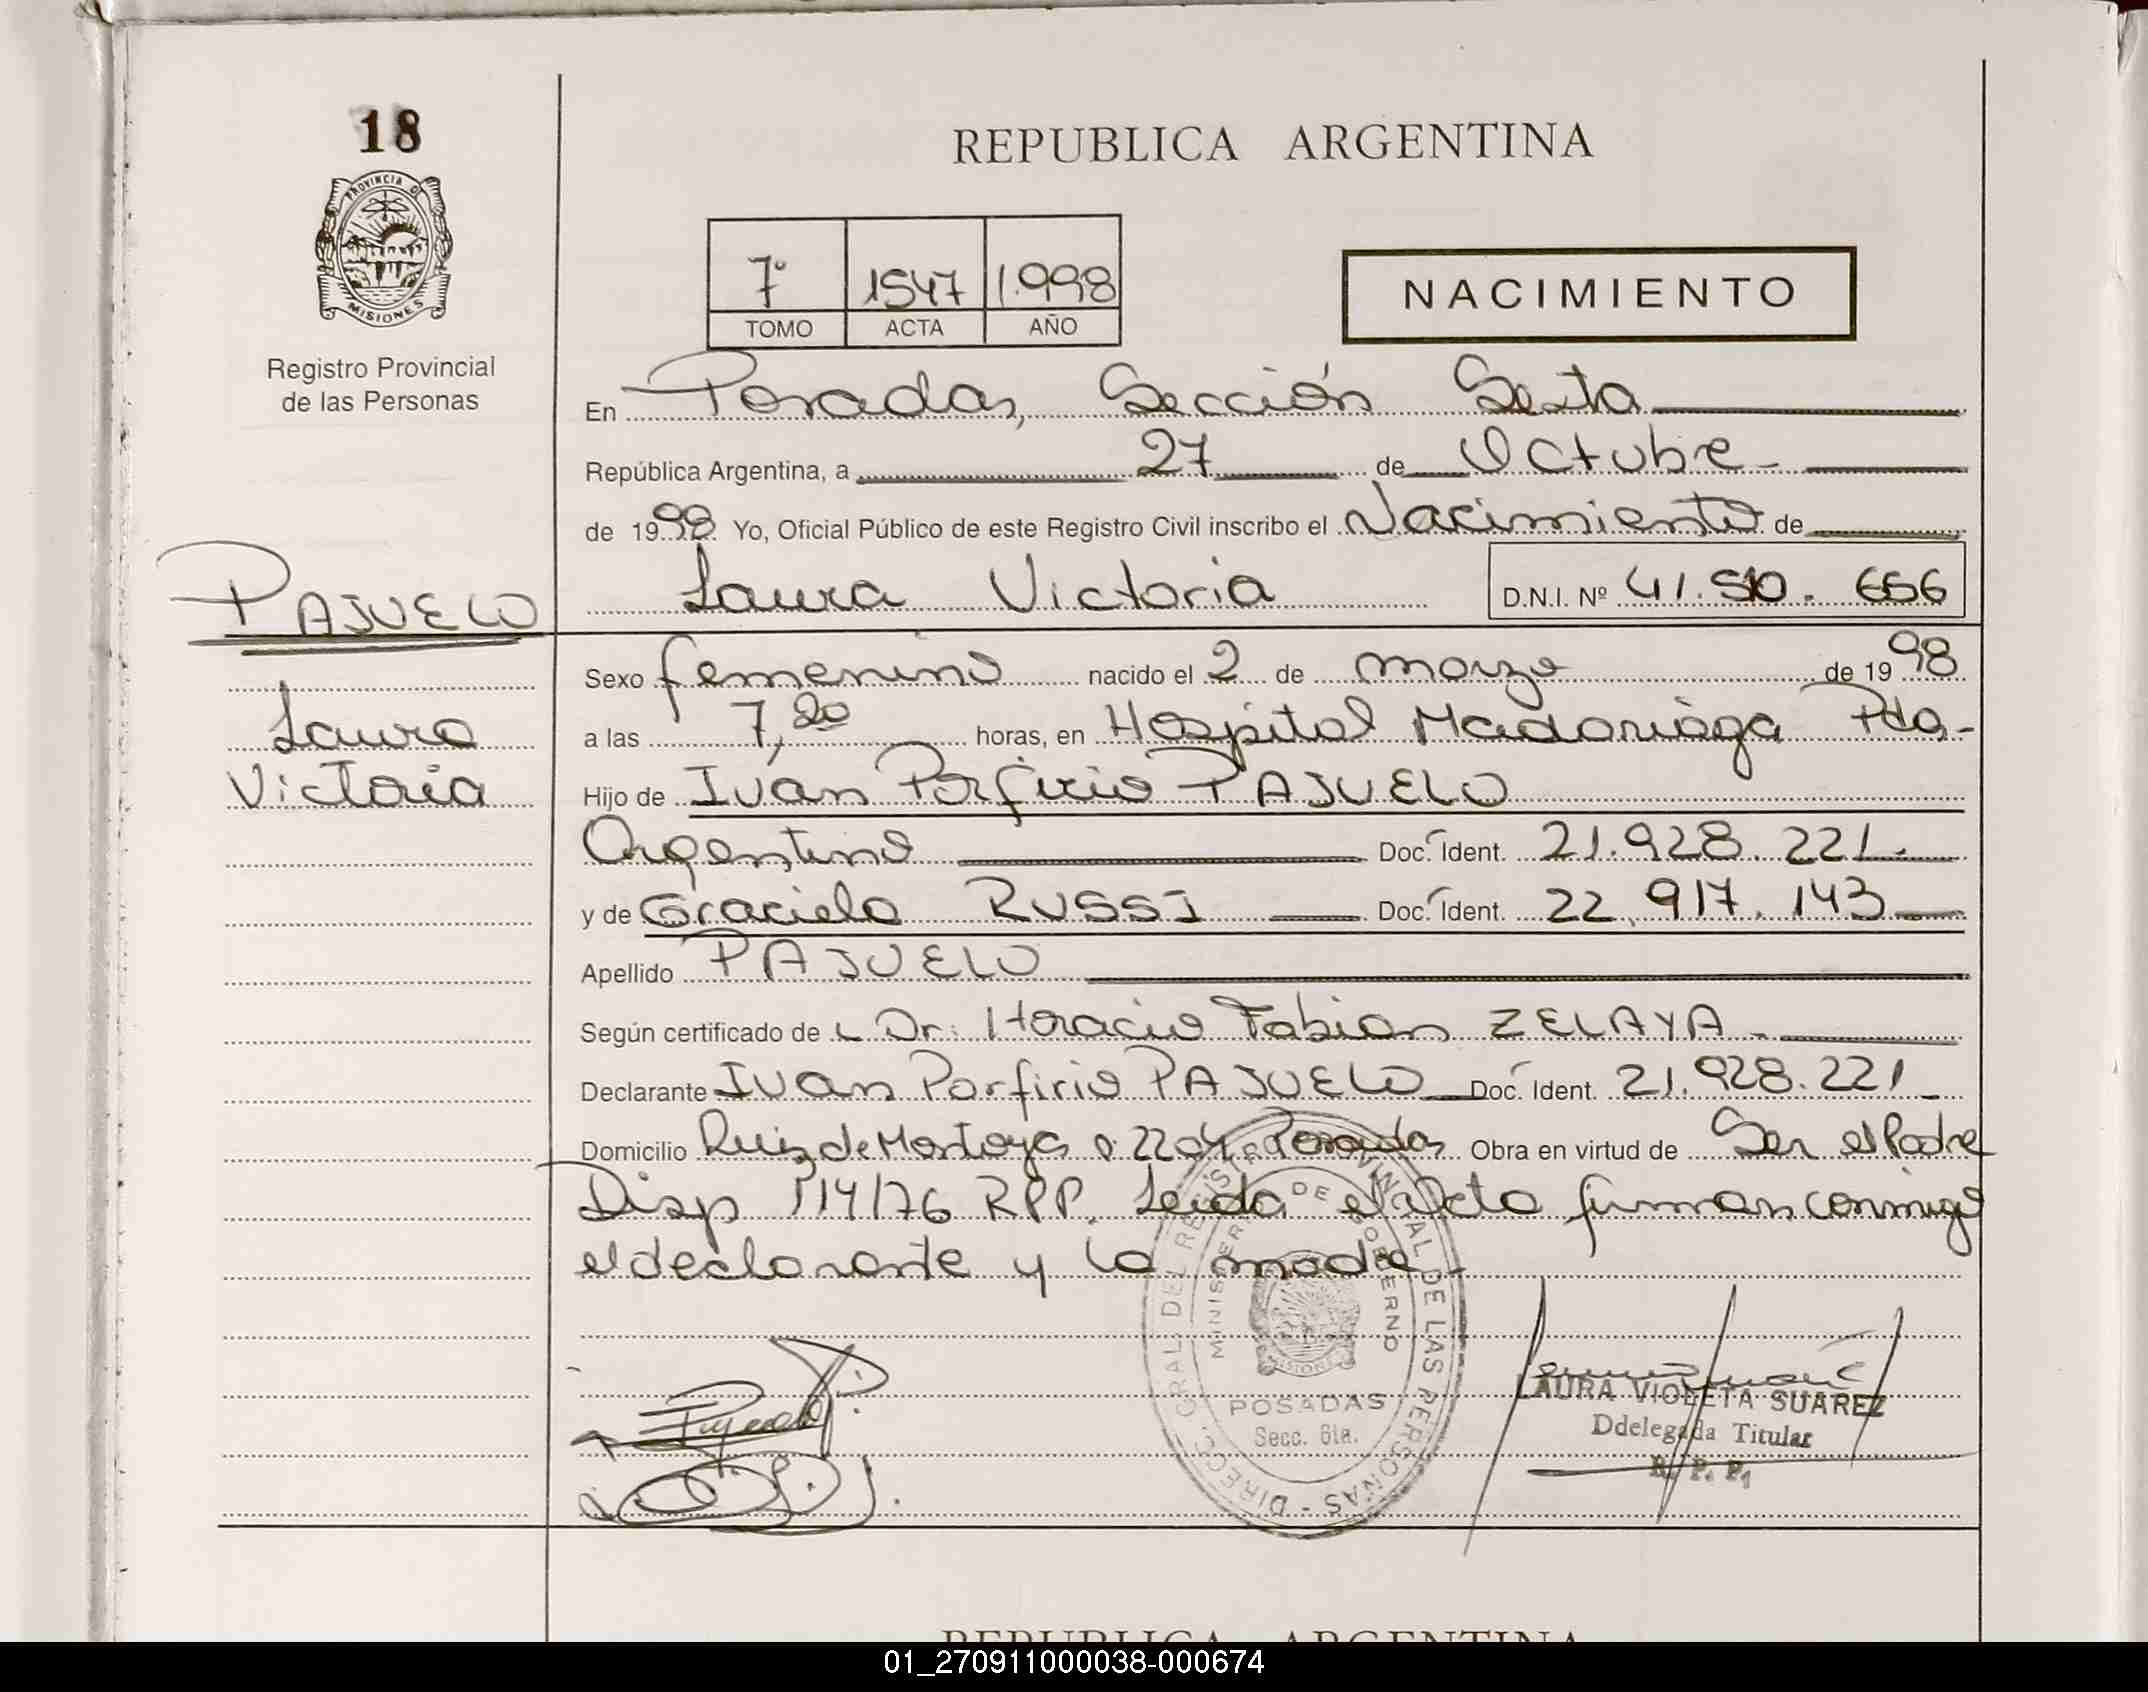 18
PROVINCIA D
MISIONES
Registro Provincial
de las Personas
REPUBLICA ARGENTINA
7º 1547 1.998
TOMO ACTA AÑO
NACIMIENTO
En Posadas, Sección Sexta
República Argentina, a 27 de Octubre
de 1998 Yo, Oficial Público de este Registro Civil inscribo el Nacimiento de
PAJUELO
Laura Victoria D.N.I. Nº 41.510.656
Sexo femenino nacido el 2 de marzo de 1998
Laura
a las 7,20 horas, en Hospital Madariaga Pda-
Victoria
Hijo de Iván Porfirio PAJUELO
Argentino Doc. Ident. 21.928.221.
y de Graciela RUSSI Doc. Ident. 22.917.143
Apellido PAJUELO
Según certificado de Dr. Horacio Fabian ZELAYA
Declarante Ivan Porfirio PAJUELO Doc. Ident. 21.928.221
Domicilio Ruiz de Montoya 2204 Posadas Obra en virtud de Ser el Padre
Disp 114/76 RPP. Leida el Acta firman conmigo
el declarante y la madre
DIRECC. GRAL. DEL REGISTRO PROVINCIAL DE LAS PERSONAS -
MINISTERIO DE GOBIERNO
MISIONES
POSADAS
Secc. 6ta.
LAURA VIOLETA SUAREZ
Ddelegada Titular
R. P. P.
REPUBLICA ARGENTINA
01_270911000038-000674